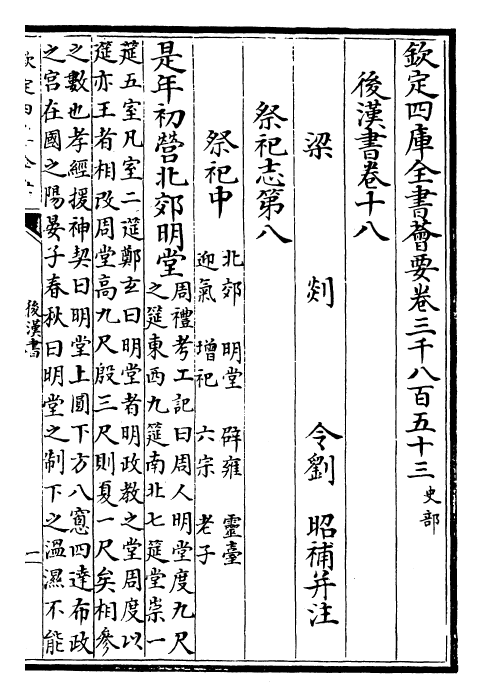 欽定四庫全書薈要卷三千八百五十三 史部
後漢書卷十八
梁 剡 令劉 昭補并注
祭祀志第八
祭祀中 北郊 明堂 辟雍 靈臺
迎氣 增祀 六宗 老子
是年初營北郊明堂 周禮考工記曰周人明堂度九尺
之筵東西九筵南北七筵堂崇一
筵五室凡室二筵鄭玄曰明堂者明政教之堂周度以
筵亦王者相改周堂高九尺殷三尺則夏一尺矣相參
之數也孝經援神契曰明堂上圓下方八窻四達布政
之宮在國之陽晏子春秋曰明堂之制下之溫濕不能
後漢書
一